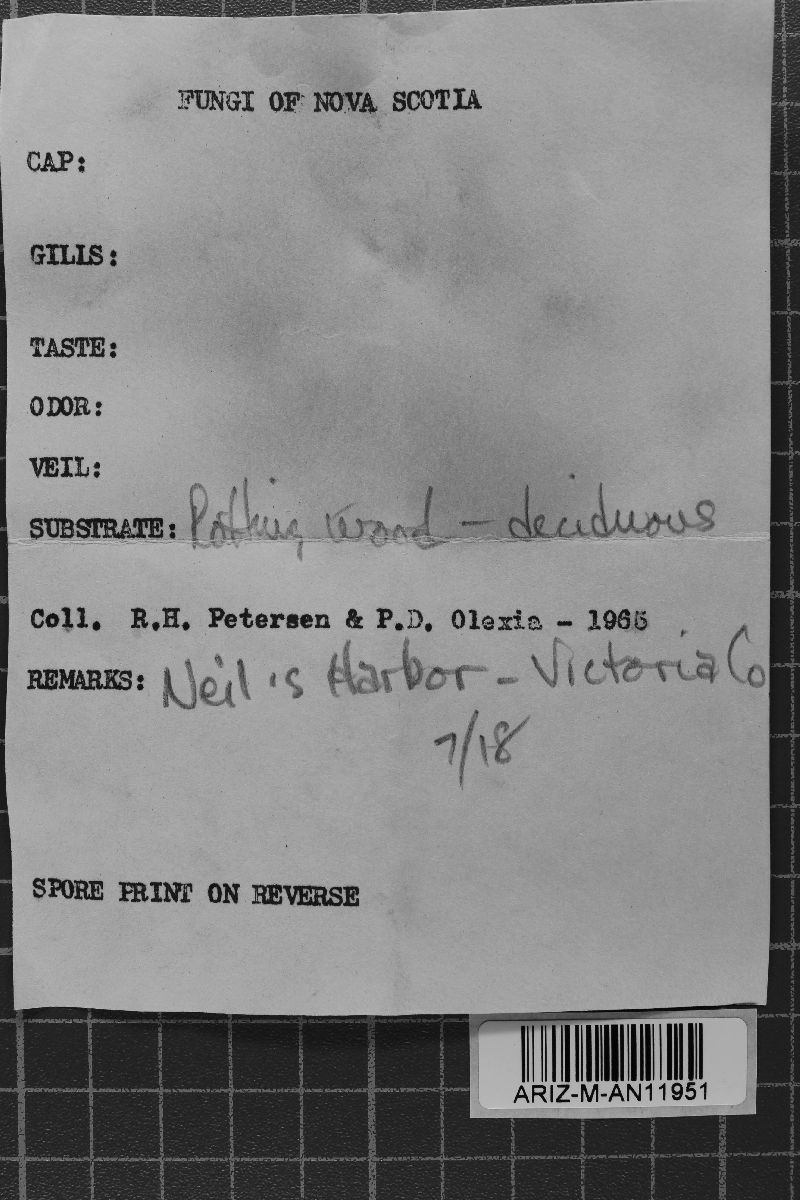 FUNGI OF NOVA SCOTIA
CAP:
GILLS:
TASTE:
ODOR:
VEIL:
SUBSTRATE: Rotting wood - deciduous
Coll. R.H. Petersen & P.D. Olexia - 1965
REMARKS: Neil's Harbor - Victoria Co
7/18
SPORE PRINT ON REVERSE
ARIZ-M-AN11951